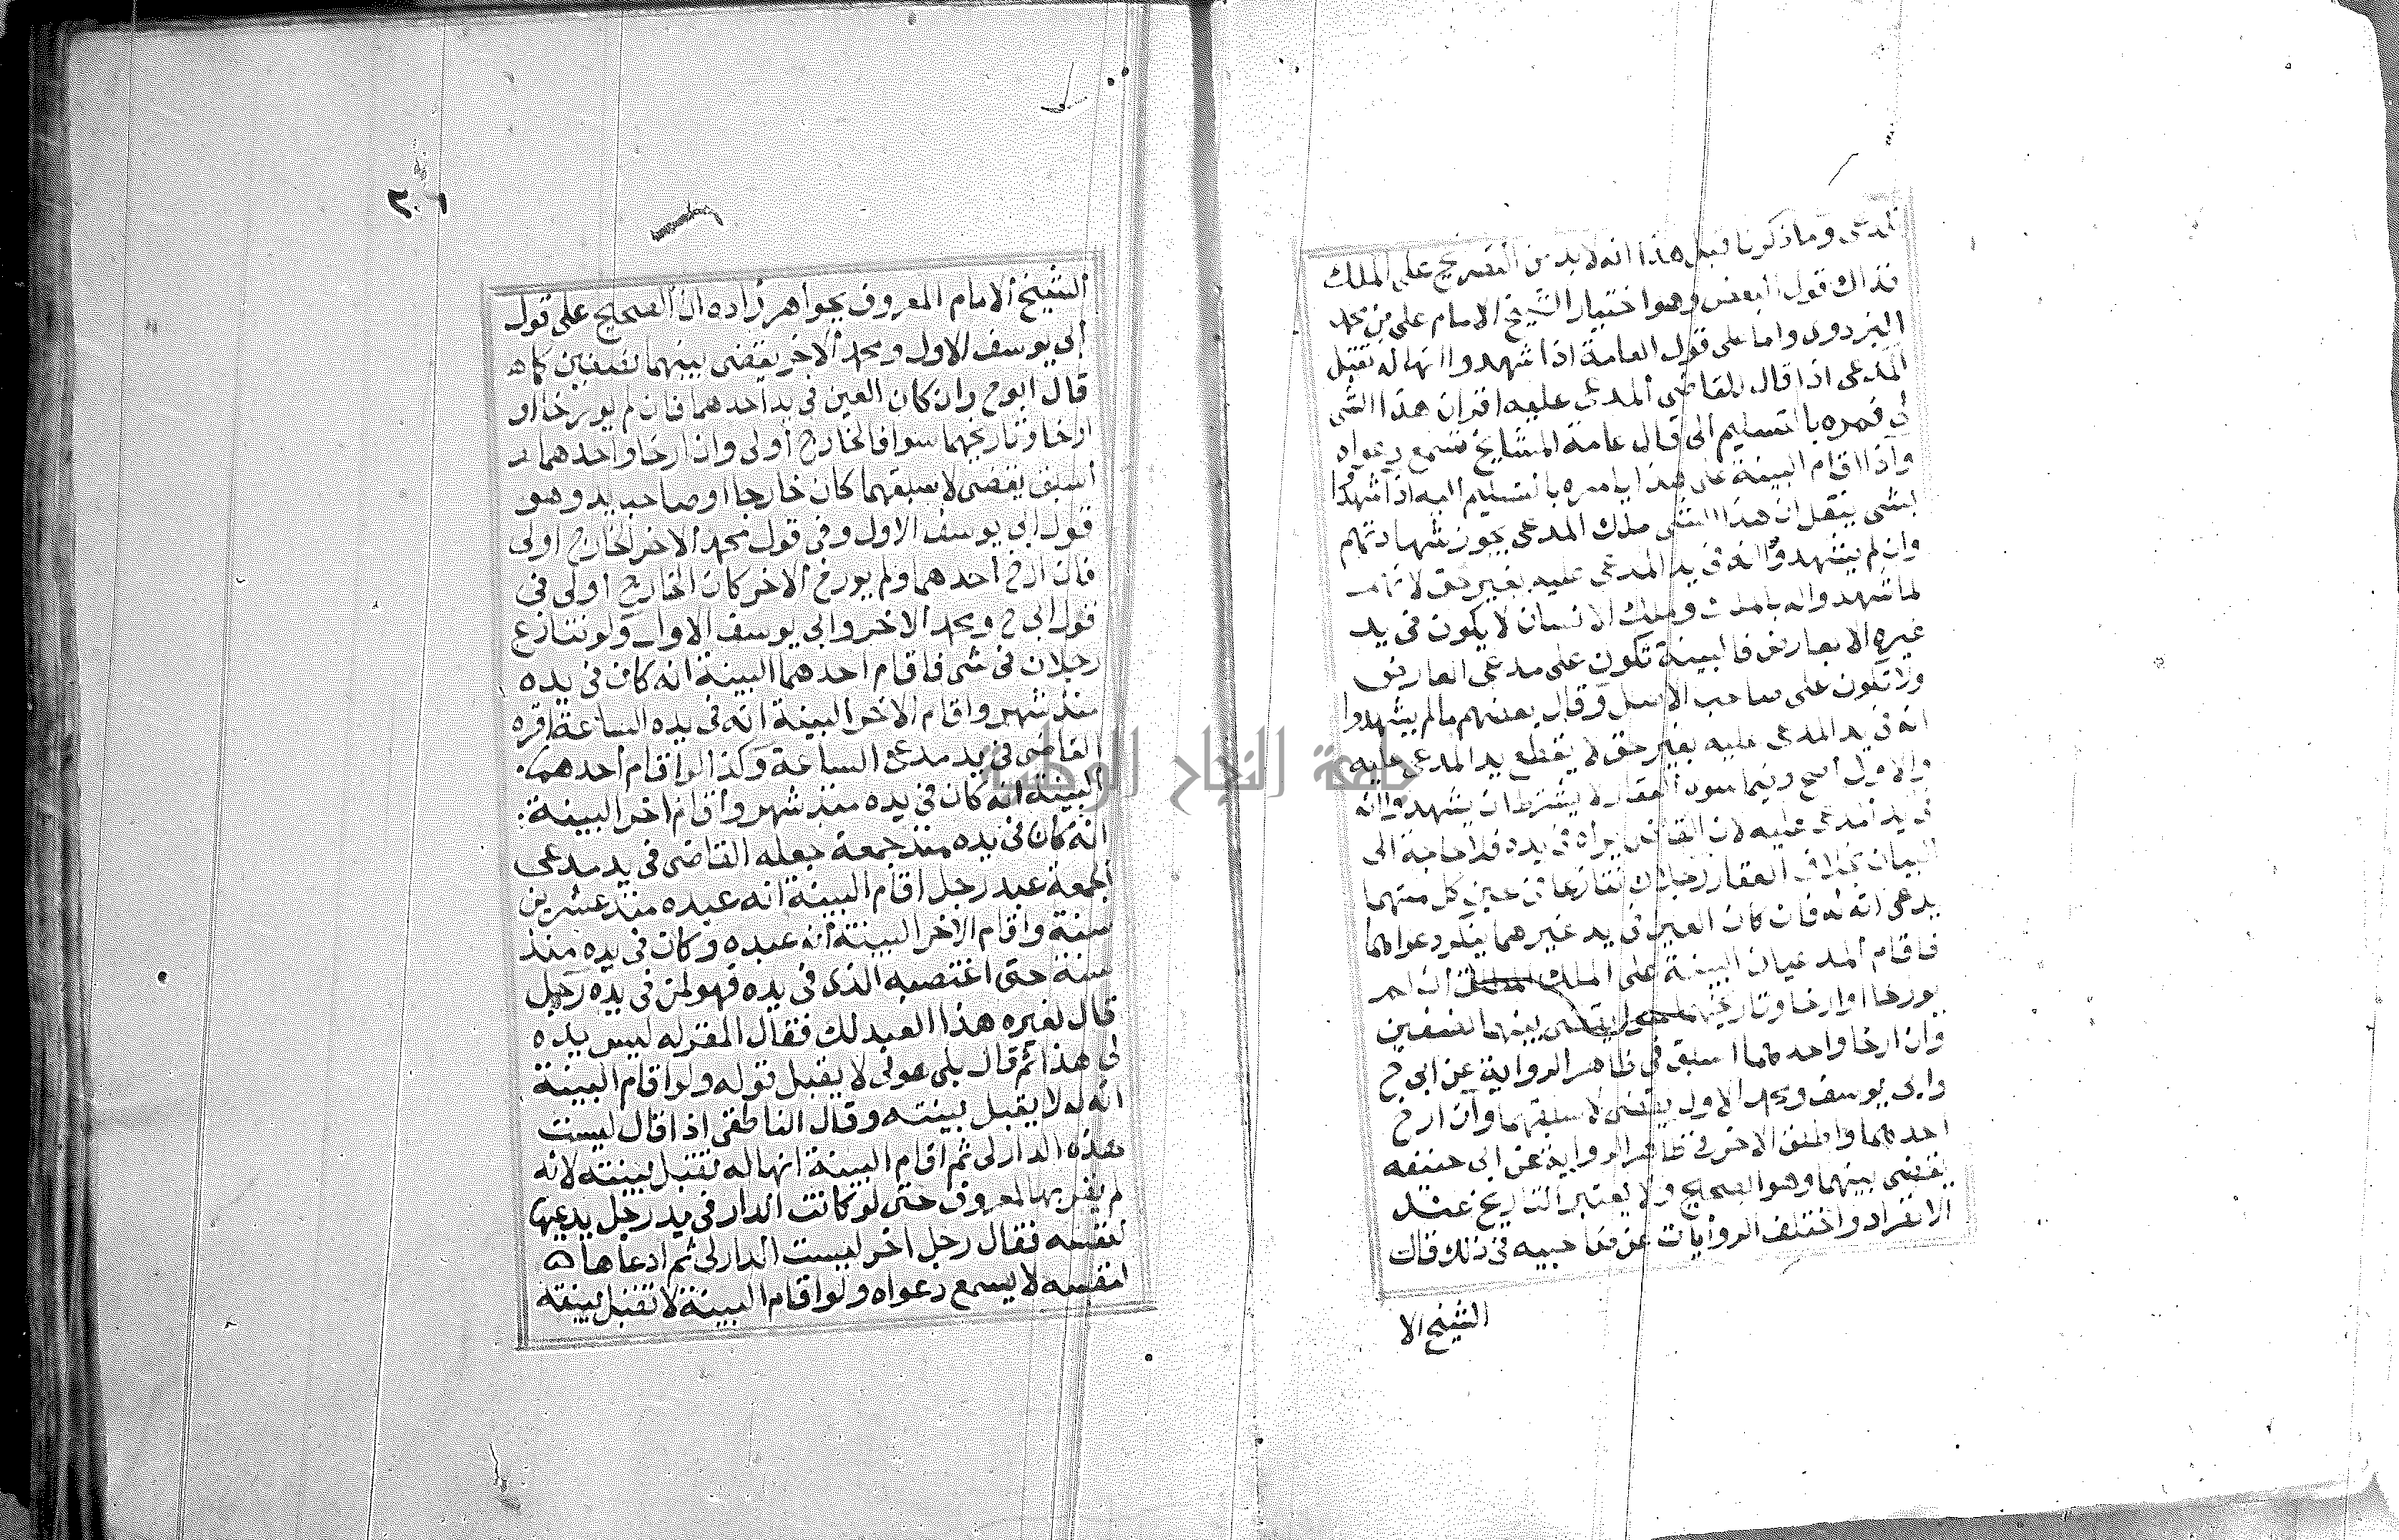 للمدعى وما ذكرنا قبل هذا انه لابد من التصريح على الملك
فذاك قول البعض وهو اختيار الشيخ الامام على بن محمد
البزدوى واما على قول العامة اذا شهدوا انها له تقبل
المدعى اذا قال للقاضى المدعى عليه اقران هذا الشى
لى فمره بالتسليم الى قال عامة المشايخ تسمع دعواه
واذا اقام البينة على هذا يامره بالتسليم اليه اذا شهدوا
بشى ينقل ان هذا الشى ملك المدعى يجوز شهادتهم
وان لم يشهدوا انه فى يد المدعى عليه بغير حق لانهم
لما شهدوا له بالملك وملك الانسان لا يكون فى يد
غيره الا بعارض فالبينة تكون على مدعى العارض
ولا تكون على صاحب الاصل وقال بعضهم ما لم يشهدوا
انه فى يد المدعى عليه بغير حق لا يقطع يد المدعى عليه
والاول اصح وفيما سوى العقار لا يشترط ان يشهدوا انه
فى يد المدعى عليه لان القاضى يراه فى يده فلا حاجة الى
البيان بخلاف العقار رجلان تنازعا فى عين كل منهما
يدعى انه له فان كان العين فى يد غيرهما ينكر دعواهما
فاقام المدعيان البينة على الملك ان لم
يورخا او ارخا وتاريخهما يقضى بينهما نصفين
وان ارخا واحدهما اسبق فى ظاهر الرواية عن ابى ح
وابى يوسف ومحمد الاول يقضى لاسبقهما وان ارخ
احدهما واطلق الاخر فى ظاهر الرواية عن ابى حنيفه
يقضى بينهما وهو الصحيح ولا يعتبر التاريخ عند
الانفراد واختلف الروايات عن صاحبيه فى ذلك قال
الشيخ الا
٢٠٦
الشيخ الامام المعروف بخواهر زاده ان الصحيح على قول
ابى يوسف الاول ومحمد الاخر يقضى بينهما نصفين كما
قال ابو ح وان كان العين فى يد احدهما فان لم يورخا او
ارخا وتاريخهما سوا فالخارج اولى وان ارخا واحدهما
اسبق يقضى لاسبقهما كان خارجا او صاحب يد وهو
قول ابى يوسف الاول وفى قول محمد الاخر الخارج اولى
فان ارخ احدهما ولم يورخ الاخر كان الخارج اولى فى
قول ابى ح ومحمد الاخر وابى يوسف الاول ولو تنازع
رجلان فى شى فاقام احدهما البينة انه كان فى يده
منذ شهر واقام الاخر البينة انه فى يده الساعة اقره
القاضى فى يد مدعى الساعة وكذا لو اقام احدهما
البينة انه كان فى يده منذ شهر واقام اخر البينة
انه كان فى يده منذ جمعة جعله القاضى فى يد مدعى
الجمعة عبد رجل اقام البينة انه عبده منذ عشرين
سنة واقام الاخر البينة انه عبده وكان فى يده منذ
سنة حتى اغتصبه الذى فى يده فهو لمن فى يده رجل
قال لغيره هذا العبد لك فقال المقر له ليس يده
لى هذا ثم قال بلى هو لى لا يقبل قوله ولو اقام البينة
انه له لا يقبل بينته وقال الناطقى اذا قال ليست
هذه الدار لى ثم اقام البينة انها له تقبل بينته لانه
لم يقر بها لمعروف حتى لو كانت الدار فى يد رجل يدعيها
لنفسه فقال رجل اخر ليست الدار لى ثم ادعاها
لنفسه لا يسمع دعواه ولو اقام البينة لا تقبل بينته
جامعة النجاح الوطنية